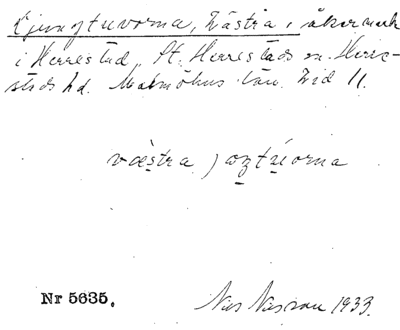 Ljungtuvorna, Västra, åkermark
i Herrestad, St. Herrestads sn. Herre-
stads hd. Malmöhus län. Zid 11.
væstra joŋtuorna
Nr 5635.
Nils 1933.